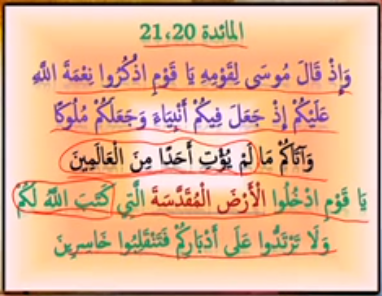 المائدة 21،20
وَإِذْ قَالَ مُوسَى لِقَوْمِهِ يَا قَوْمِ اذْكُرُوا نِعْمَةَ اللَّهِ
عَلَيْكُمْ إِذْ جَعَلَ فِيكُمْ أَنْبِيَاءَ وَجَعَلَكُمْ مُلُوكًا
وَآتَاكُمْ مَا لَمْ يُؤْتِ أَحَدًا مِنَ الْعَالَمِينَ
يَا قَوْمِ ادْخُلُوا الْأَرْضَ الْمُقَدَّسَةَ الَّتِي كَتَبَ اللَّهُ لَكُمْ
وَلَا تَرْتَدُّوا عَلَى أَدْبَارِكُمْ فَتَنْقَلِبُوا خَاسِرِينَ